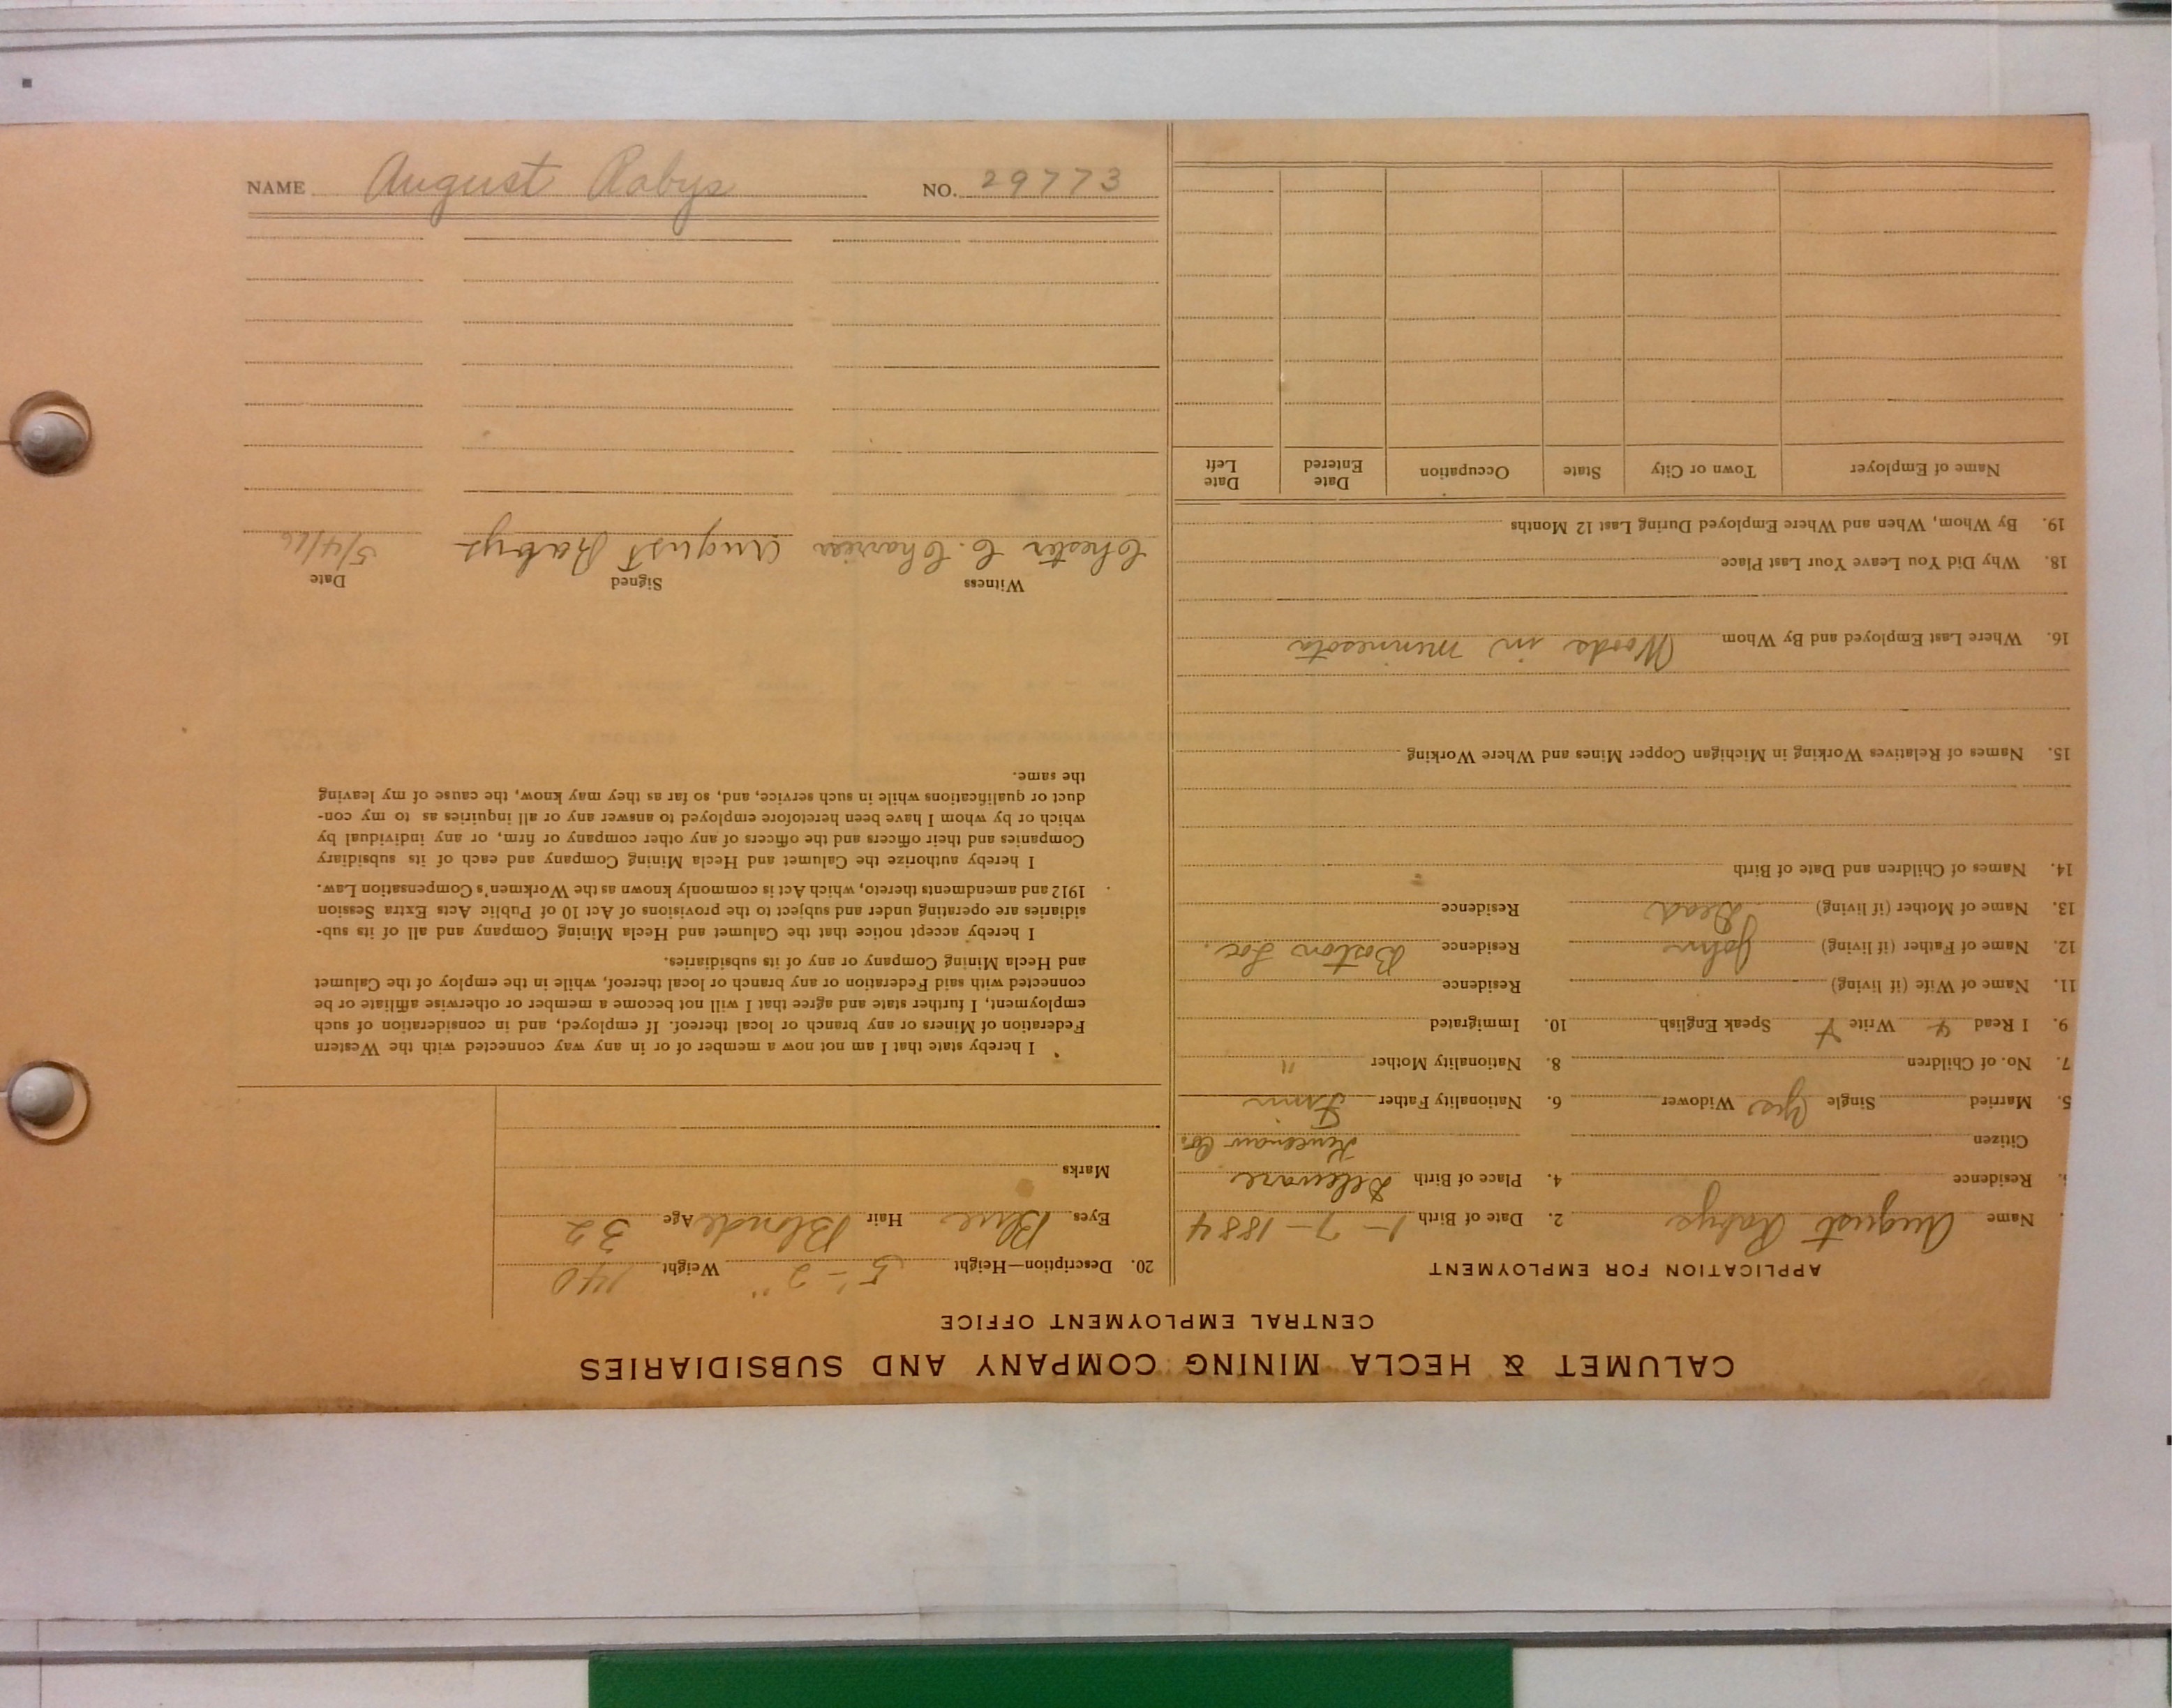 CALUMET & HECLA MINING COMPANY AND SUBSIDIARIES
CENTRAL EMPLOYMENT OFFICE
APPLICATION FOR EMPLOYMENT
. Name August Rabys 2. Date of Birth 1-7-1884
. Residence 4. Place of Birth Deleware
Citizen Keweenaw Co.
5. Married Single Yes Widower 6. Nationality Father Finn
7. No. of Children 8. Nationality Mother "
9. I Read Y Write Y Speak English 10. Immigrated
11. Name of Wife (if living) Residence
12. Name of Father (if living) John Residence Boston Loc.
13. Name of Mother (if living) Dead Residence
14. Names of Children and Date of Birth
15. Names of Relatives Working in Michigan Copper Mines and Where Working
16. Where Last Employed and By Whom Woods in Minnesota
18. Why Did You Leave Your Last Place
19. By Whom, When and Where Employed During Last 12 Months
Name of Employer Town or City State Occupation Date Entered Date Left
20. Description—Height 5'-2" Weight 140
Eyes Blue Hair Blonde Age 32
Marks
I hereby state that I am not now a member of or in any way connected with the Western
Federation of Miners or any branch or local thereof. If employed, and in consideration of such
employment, I further state and agree that I will not become a member or otherwise affiliate or be
connected with said Federation or any branch or local thereof, while in the employ of the Calumet
and Hecla Mining Company or any of its subsidiaries.
I hereby accept notice that the Calumet and Hecla Mining Company and all of its sub-
sidiaries are operating under and subject to the provisions of Act 10 of Public Acts Extra Session
1912 and amendments thereto, which Act is commonly known as the Workmen's Compensation Law.
I hereby authorize the Calumet and Hecla Mining Company and each of its subsidiary
Companies and their officers and the officers of any other company or firm, or any individual by
which or by whom I have been heretofore employed to answer any or all inquiries as to my con-
duct or qualifications while in such service, and, so far as they may know, the cause of my leaving
the same.
Witness Signed Date
Chester C. August Rabys 5/4/16
NAME August Rabys NO. 29773